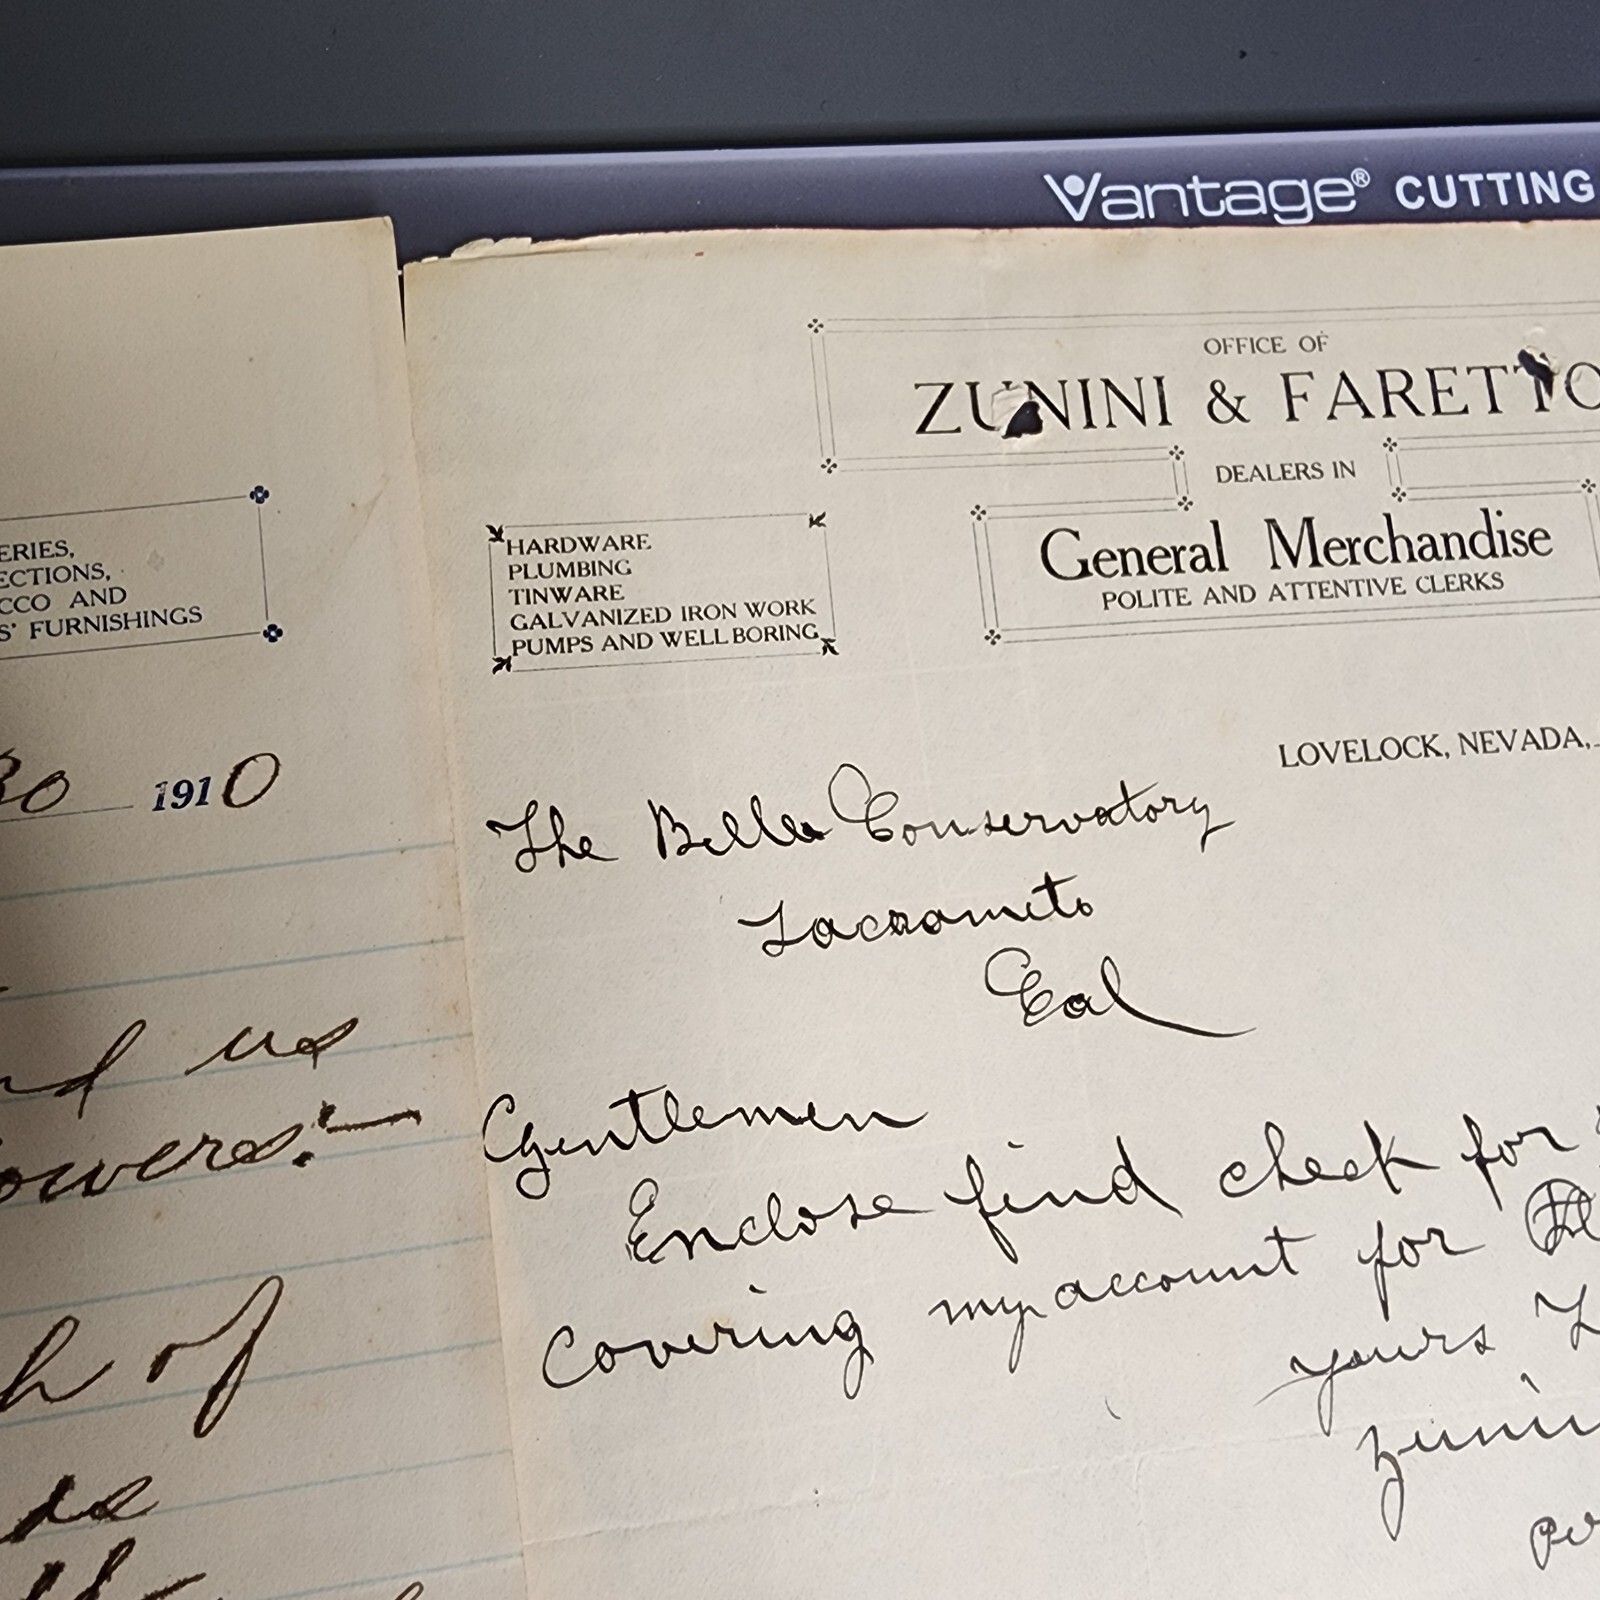 Vantage® CUTTING
ERIES,
ECTIONS,
CCO AND
S' FURNISHINGS
30 1910
nd us
owers:—
h of
ds
OFFICE OF
ZUNINI & FARETTO
DEALERS IN
General Merchandise
POLITE AND ATTENTIVE CLERKS
HARDWARE
PLUMBING
TINWARE
GALVANIZED IRON WORK
PUMPS AND WELL BORING
LOVELOCK, NEVADA,
The Belle Conservatory
Sacramito
Cal
Gentlemen
Enclose find check for
Covering my account for
yours
Zunini
per